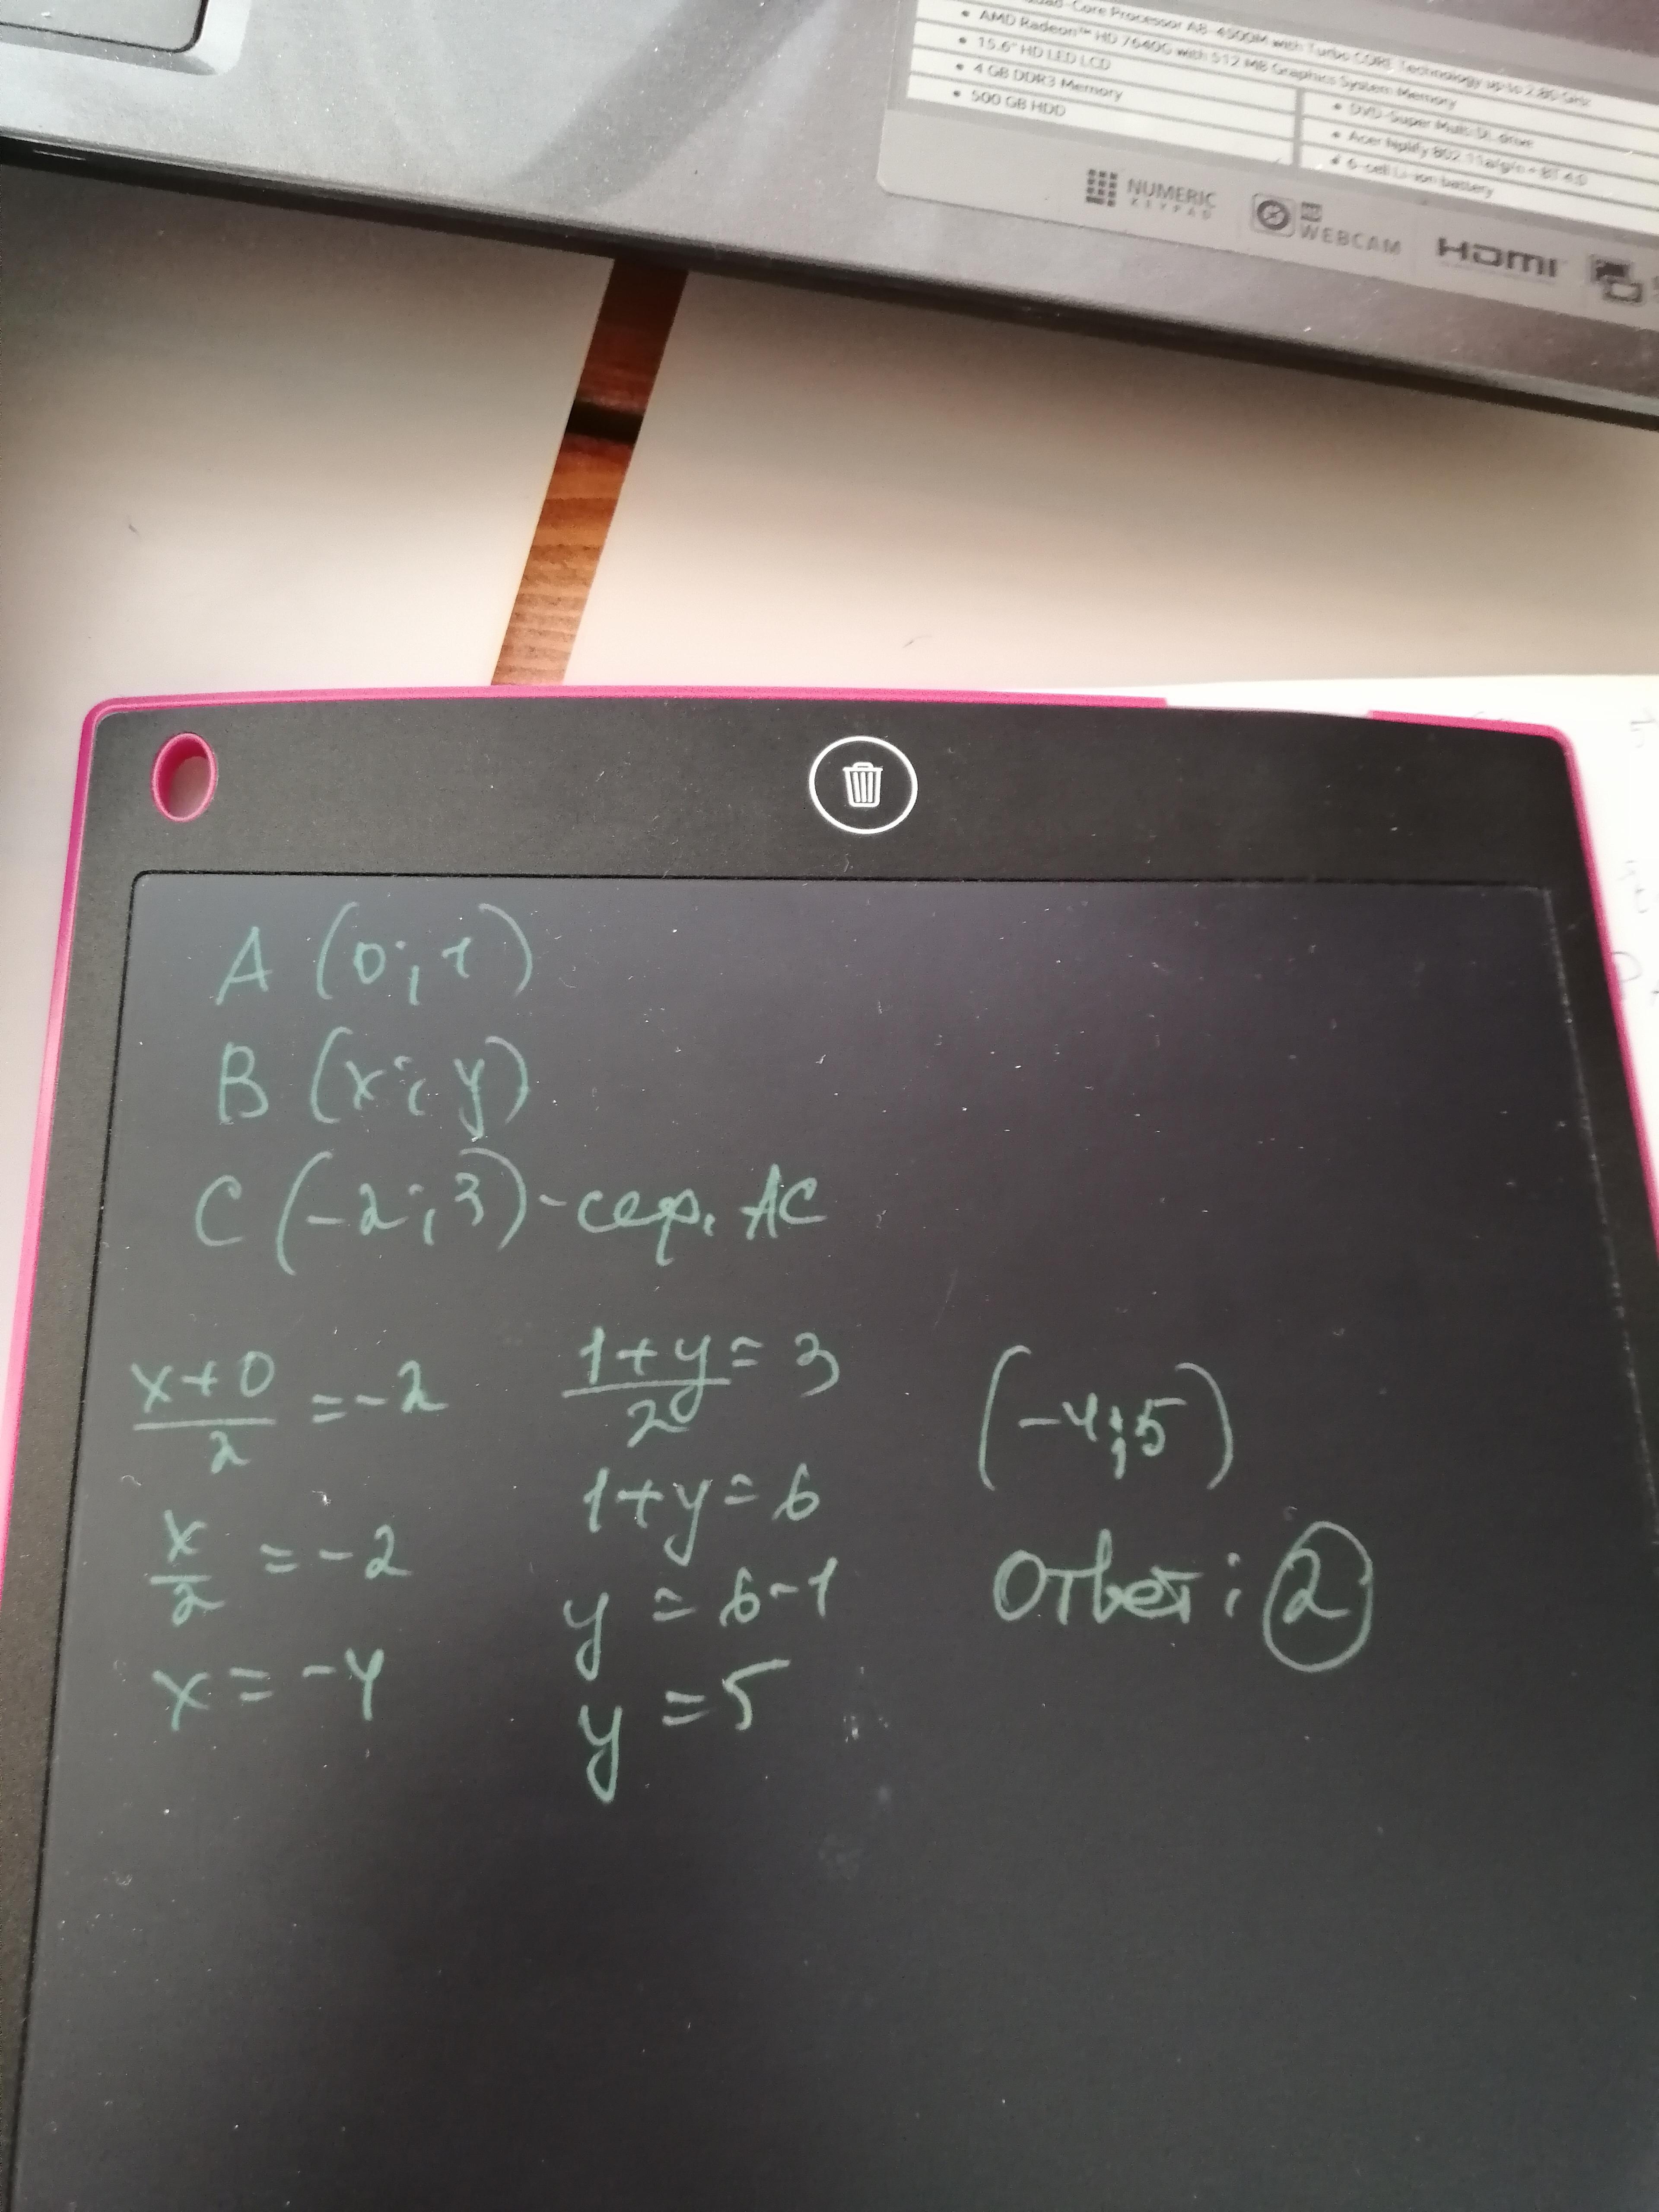 Core Processor A8-4500M with Turbo CORE Technology up to 2.80 GHz
• AMD Radeon™ HD 7640G with 512 MB Graphics System Memory
• 15.6" HD LED LCD
• 4 GB DDR3 Memory
• 500 GB HDD
• DVD-Super Multi DL drive
• Acer Nplify 802.11a/g/n + BT 4.0
• 6-cell Li-ion battery
NUMERIC
KEYPAD
HD
WEBCAM
HDMI
A (0;1)
B (x;y)
C (-2;3)-сер. AC
x+0/2 = -2
x/2 = -2
x = -4
1+y/2 = 3
1+y = 6
y = 6-1
y = 5
(-4;5)
Ответ: 2